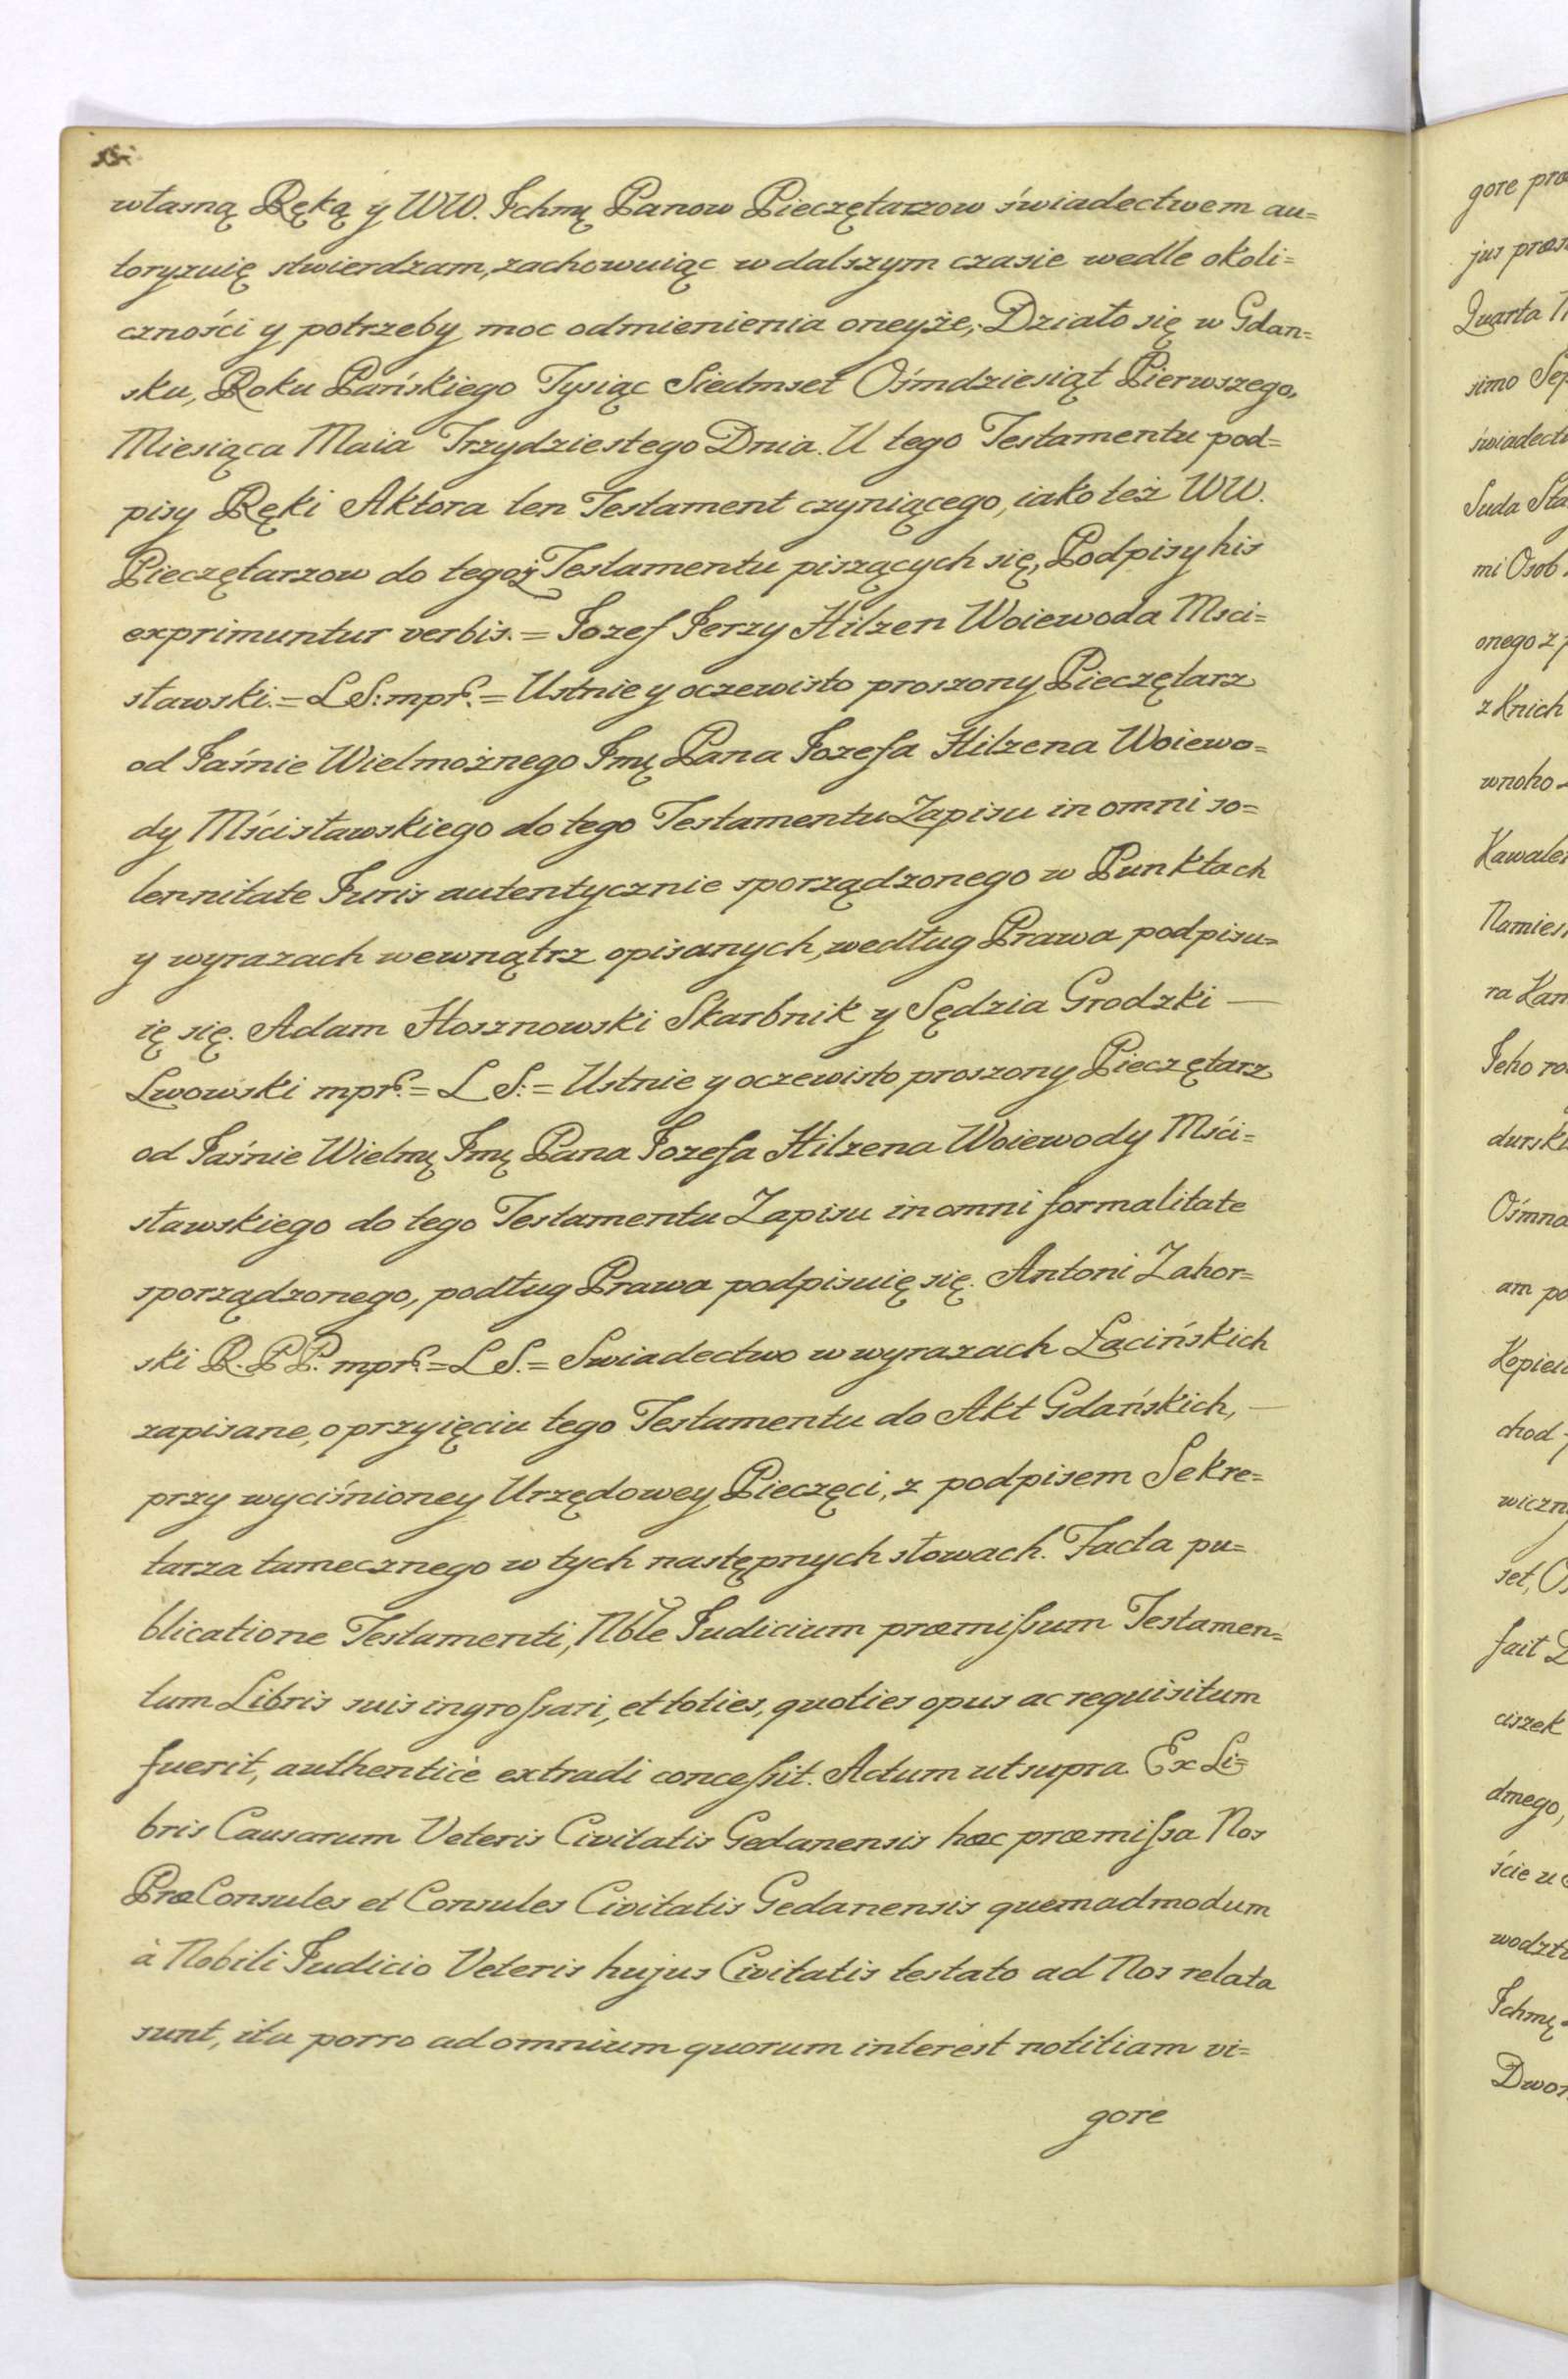 własną Ręką y WW. Ichmę Panow Pieczętarzow świadectwem au=
toryzuię stwierdzam, zachowuiąc w dalszym czasie wedle okoli=
czności y potrzeby moc odmienienia oneyże, Działo się w Gdan=
sku, Roku Pańskiego Tysiąc Siedmset Ośmdziesiąt Pierwszego,
Miesiąca Maia Trzydziestego Dnia. U tego Testamentu pod=
pisy Ręki Aktora ten Testament czyniącego, iako też WW.
Pieczętarzow do tegoż Testamentu piszących się, Podpisy his
exprimuntur verbis. = Iozef Ierzy Hilzen Woiewoda Msci=
sławski. = L S: mpr. = Ustnie y oczewisto proszony Pieczętarz
od Iaśnie Wielmożnego Imę Pana Iozefa Hilzena Woiewo=
dy Mścisławskiego do tego Testamentu Zapisu in omni so=
lennitate Iuris autentycznie sporządzonego w Punktach
y wyrazach wewnątrz opisanych, według Prawa podpisu=
ię się. Adam Hosznowski Skarbnik y Sędzia Grodzki —
Lwowski mpr. = L S: = Ustnie y oczewisto proszony Pieczętarz
od Iaśnie Wielmę Imę Pana Iozefa Hilzena Woiewody Mści=
sławskiego do tego Testamentu Zapisu in omni formalitate
sporządzonego, podług Prawa podpisuię się. Antoni Zahor=
ski R. P P. mpr. = L S. = Swiadectwo w wyrazach Łacińskich
zapisane, o przyięciu tego Testamentu do Akt Gdańskich, —
przy wyciśnioney Urzędowey Pieczęci, z podpisem Sekre=
tarza tamecznego w tych następnych słowach. Facta pu=
blicatione Testamenti, Nble Iudicium præmissum Testamen=
tum Libris suis ingrossari, et toties, quoties opus ac requisitum
fuerit, authenticè extradi concessit. Actum ut supra. Ex Li=
bris Causarum Veteris Civitatis Gedanensis hæc præmissa Nos
PræConsules et Consules Civitatis Gedanensis quemadmodum
à Nobili Iudicio Veteris hujus Civitatis testato ad Nos relata
sunt, ita porro ad omnium quorum interest notitiam vi=
gore
gore
jus
Quarta
simo
Suda
mi Osob
onego z
z Knich
ra
Ieho
am
set,
fait
ciszek
dmego,
ście u
Ichmę